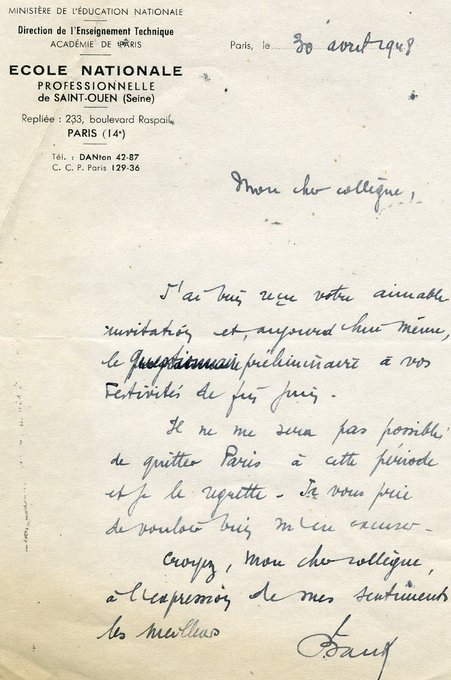 MINISTÈRE DE L'ÉDUCATION NATIONALE
Direction de l'Enseignement Technique
ACADÉMIE DE PARIS
ECOLE NATIONALE
PROFESSIONNELLE
de SAINT-OUEN (Seine)
Repliée : 233, boulevard Raspail
PARIS (14e)
Tél. : DANton 42-87
C. C. P. Paris 129-36
Paris, le 30 avril 1948
Mon cher collègue,
J'ai bien reçu votre aimable
invitation et, aujourd'hui même,
le questionnaire préliminaire à vos
festivités de fin juin.
Il ne me sera pas possible
de quitter Paris à cette période
et je le regrette - Je vous prie
de vouloir bien m'en excuser -
Croyez, mon cher collègue,
à l'expression de mes sentiments
les meilleurs